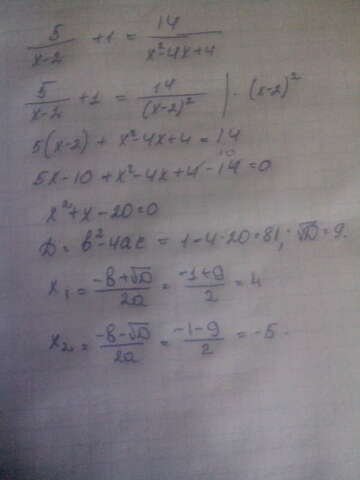 5/(x-2) + 1 = 14/(x²-4x+4)
5/(x-2) + 1 = 14/(x-2)² | · (x-2)²
5(x-2) + x²-4x+4 = 14
5x-10+x²-4x+4-14=0
10
x²+x-20=0
D = b²-4ac = 1-4·20=81; √D=9.
x₁ = (-b+√D)/2a = (-1+9)/2 = 4
x₂ = (-b-√D)/2a = (-1-9)/2 = -5.